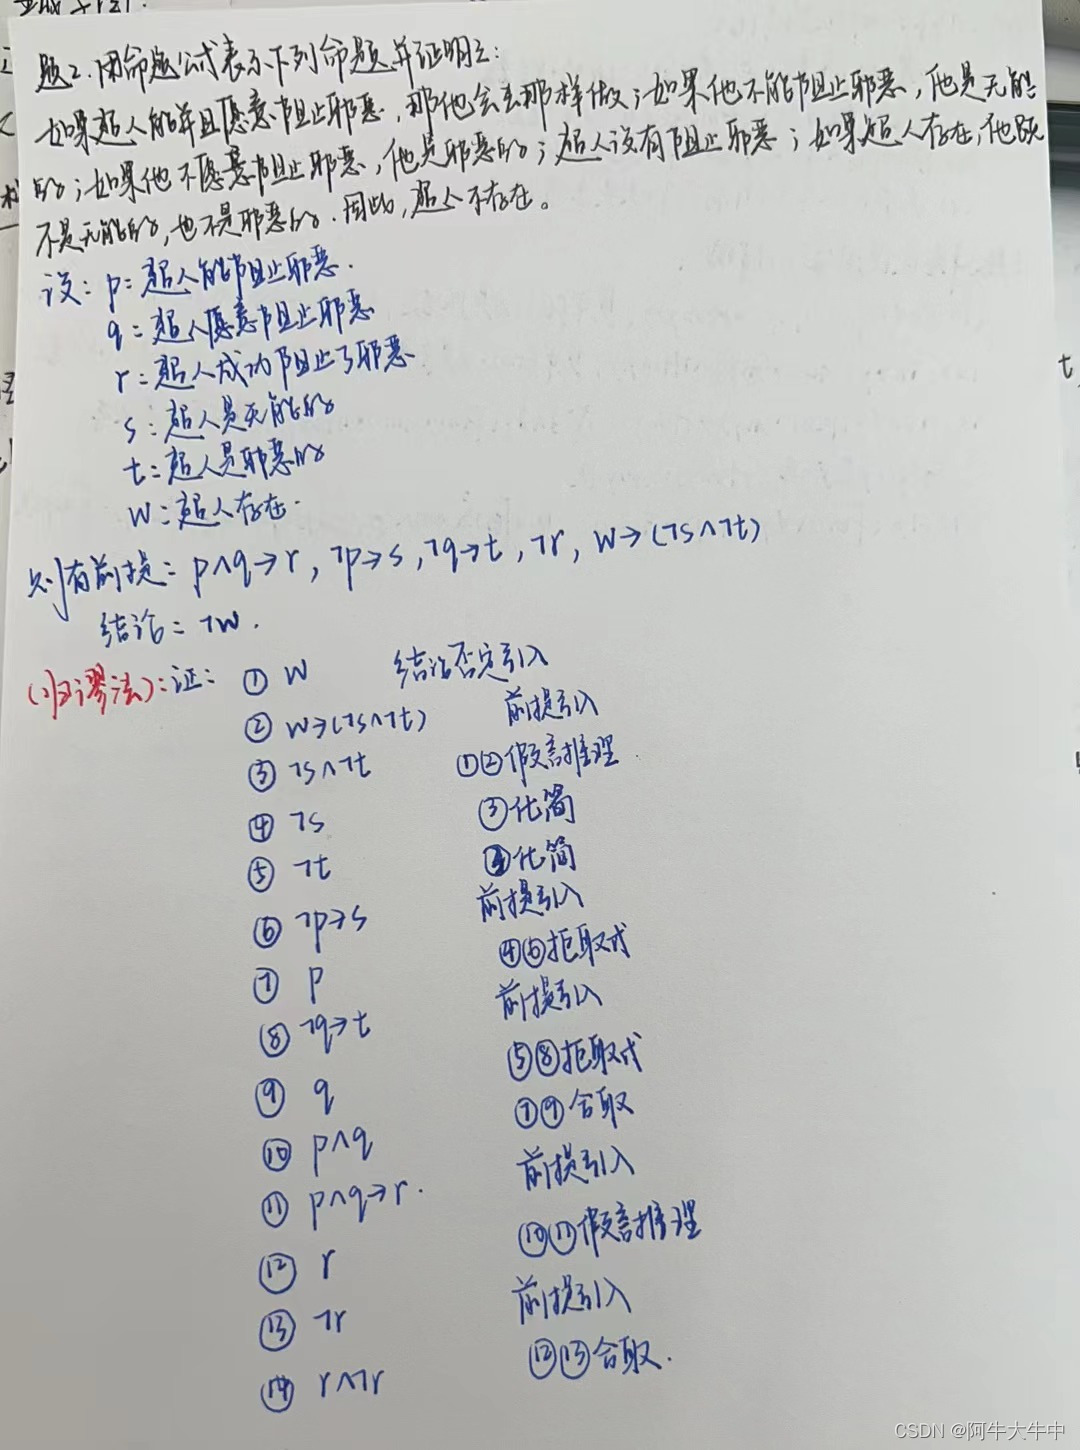 题2.用命题公式表示下列命题并证明之:
如果超人能并且愿意阻止邪恶,那他会去那样做;如果他不能阻止邪恶,他是无能
的;如果他不愿意阻止邪恶,他是邪恶的;超人没有阻止邪恶;如果超人存在,他既
不是无能的,也不是邪恶的.因此,超人不存在。
设: p=超人能阻止邪恶.
q=超人愿意阻止邪恶
r=超人成功阻止了邪恶
s:超人是无能的
t=超人是邪恶的
w:超人存在.
则有前提= p∧q→r, ¬p→s, ¬q→t, ¬r, w→(¬s∧¬t)
结论= ¬w.
(归谬法):证: ① w 结论否定引入
② w→(¬s∧¬t) 前提引入
③ ¬s∧¬t ①②假言推理
④ ¬s ③化简
⑤ ¬t ③化简
⑥ ¬p→s 前提引入
⑦ p ④⑥拒取式
⑧ ¬q→t 前提引入
⑨ q ⑤⑧拒取式
⑩ p∧q ⑦⑨合取
⑪ p∧q→r. 前提引入
⑫ r ⑩⑪假言推理
⑬ ¬r 前提引入
⑭ r∧¬r ⑫⑬合取.
CSDN @阿牛大牛中